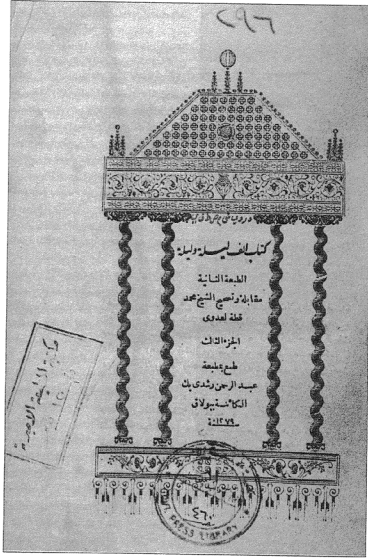 ٢٩٦
كتاب الف ليلة وليلة
الطبعة الثانية
مقابلة وتصحيح الشيخ محمد
قطة العدوى
الجزء الثالث
طبع بمطبعة
عبد الرحمن رشدى بك
الكائنة ببولاق
سنة ١٢٧٩
٤٦٠
PRESS LIBRARY